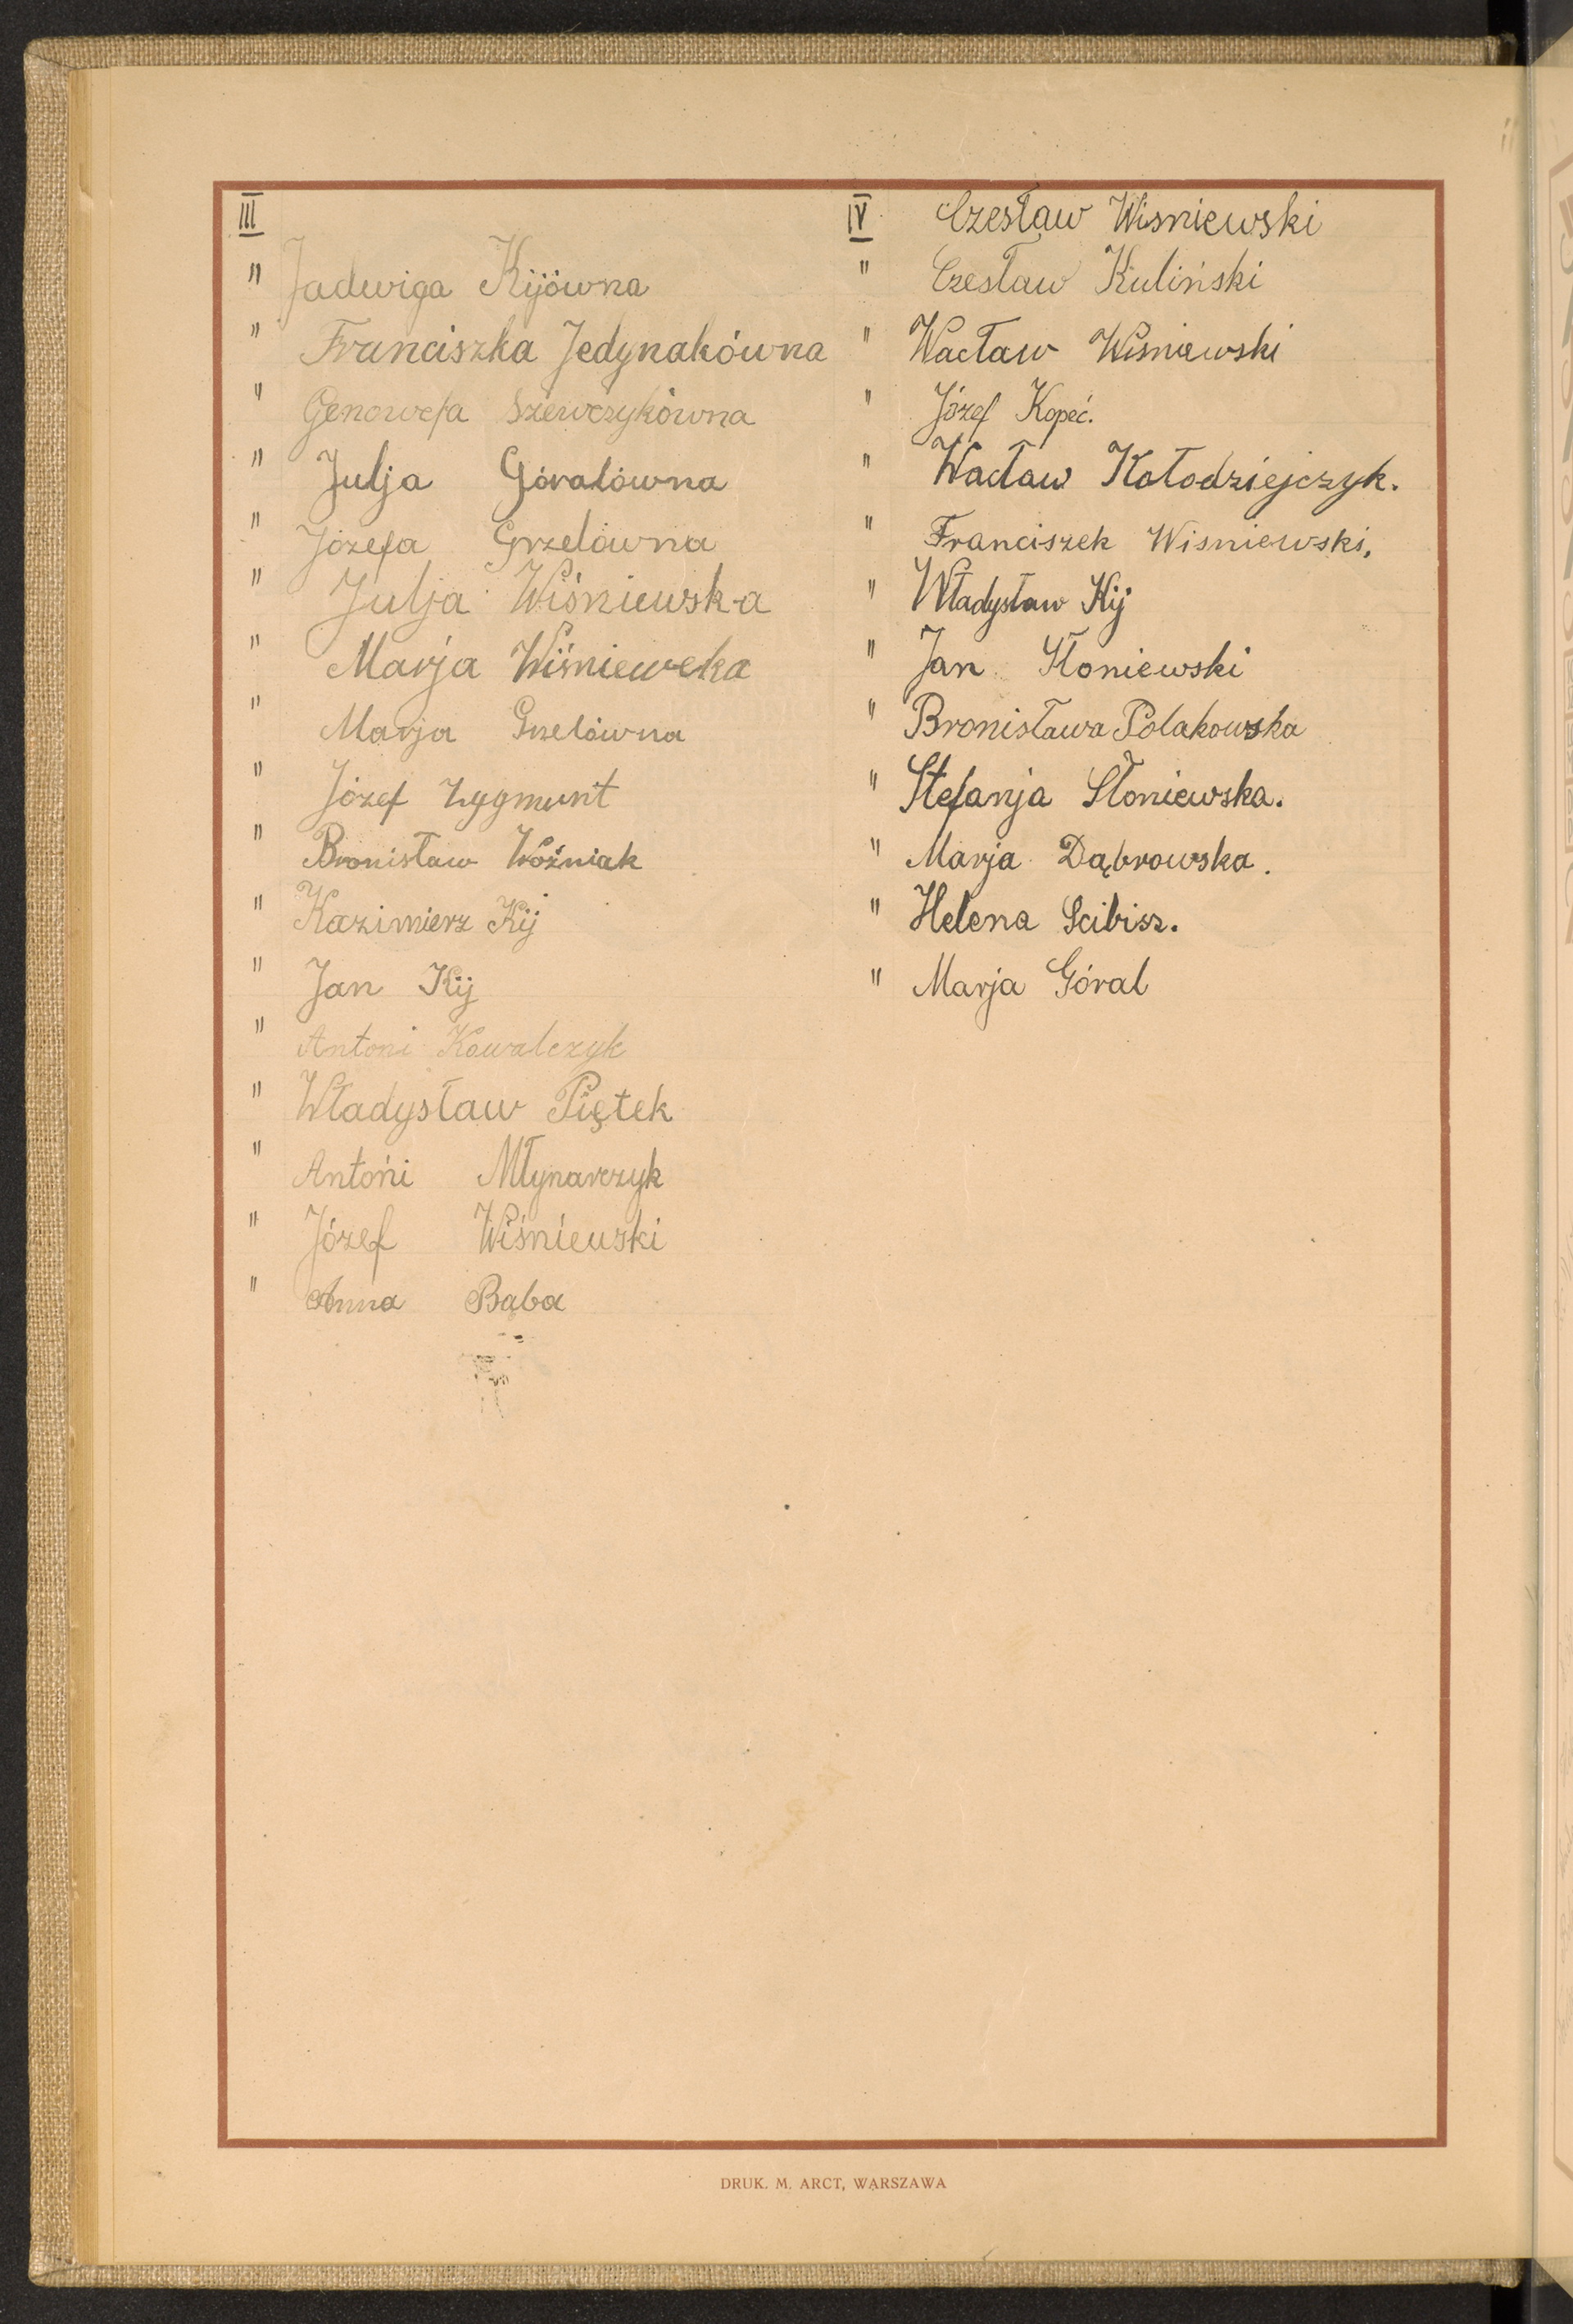 III
" Jadwiga Kijówna
" Franciszka Jedynakówna
" Genowefa Szewczykówna
" Julja Góralówna
" Józefa Grzelówna
" Julja Wiśniewska
" Marja Wiśniewska
" Marja Grzelówna
" Józef Zygmunt
" Bronisław Woźniak
" Kazimierz Kij
" Jan Kij
" Antoni Kowalczyk
" Władysław Piętek
" Antońi Młynarczyk
" Józef Wiśniewski
" Anna Bąba
IV Czesław Wisniewski
" Czesław Kuliński
" Wacław Wisniewski
" Józef Kopeć.
" Wacław Kołodziejczyk.
" Franciszek Wisniewski,
" Władysław Kij
" Jan Słoniewski
" Bronisława Polakowska
" Stefanja Słoniewska.
" Marja Dąbrowska.
" Helena Scibisz.
" Marja Góral
DRUK. M. ARCT, WARSZAWA